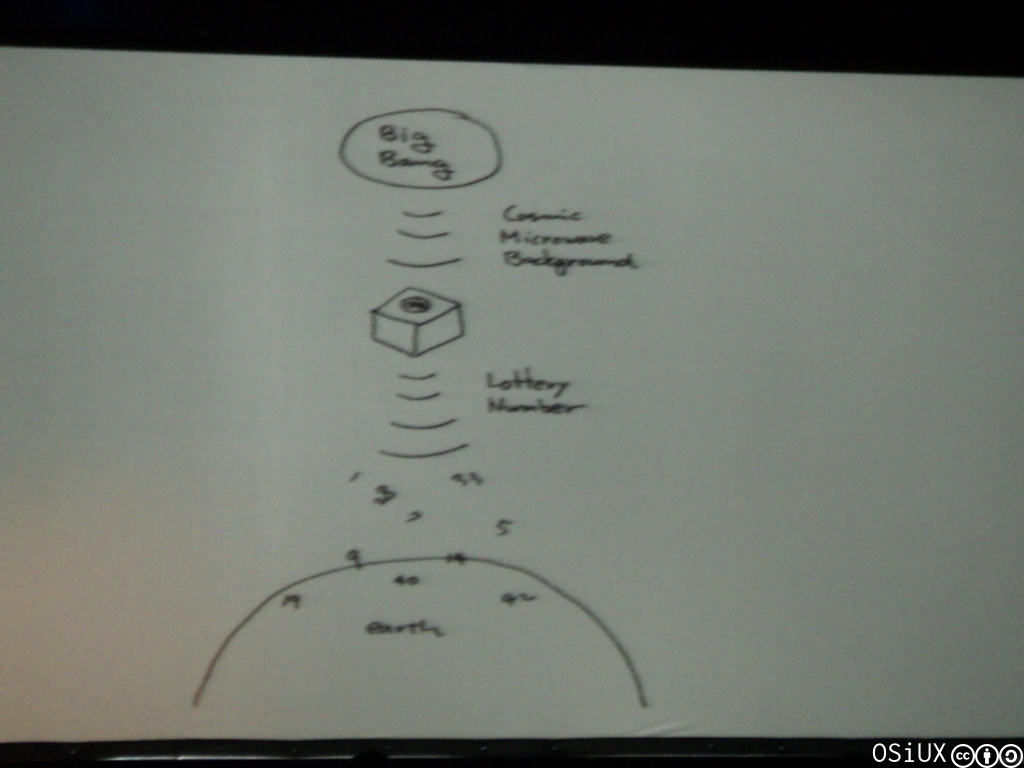 Big
Bang
Cosmic
Microwave
Background
Lottery
Number
33
5
9
14
40
19
42
earth
OSiUX